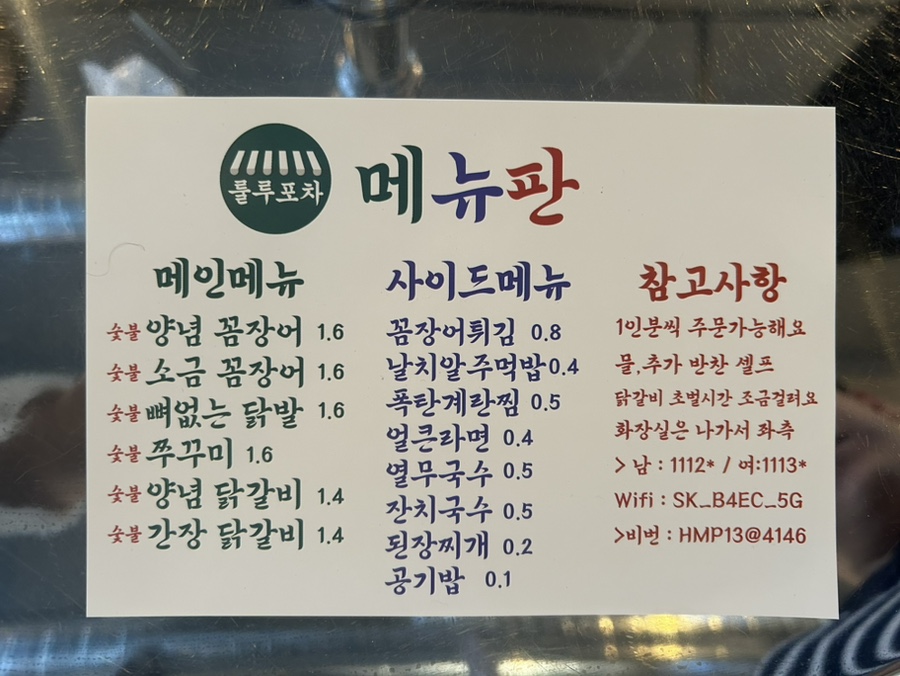 룰루포차
메뉴판
메인메뉴
숯불 양념 꼼장어 1.6
숯불 소금 꼼장어 1.6
숯불 뼈없는 닭발 1.6
숯불 쭈꾸미 1.6
숯불 양념 닭갈비 1.4
숯불 간장 닭갈비 1.4
사이드메뉴
꼼장어튀김 0.8
날치알주먹밥 0.4
폭탄계란찜 0.5
얼큰라면 0.4
열무국수 0.5
잔치국수 0.5
된장찌개 0.2
공기밥 0.1
참고사항
1인분씩 주문가능해요
물,추가 반찬 셀프
닭갈비 초벌시간 조금걸려요
화장실은 나가서 좌측
> 남 : 1112* / 여:1113*
Wifi : SK_B4EC_5G
>비번 : HMP13@4146